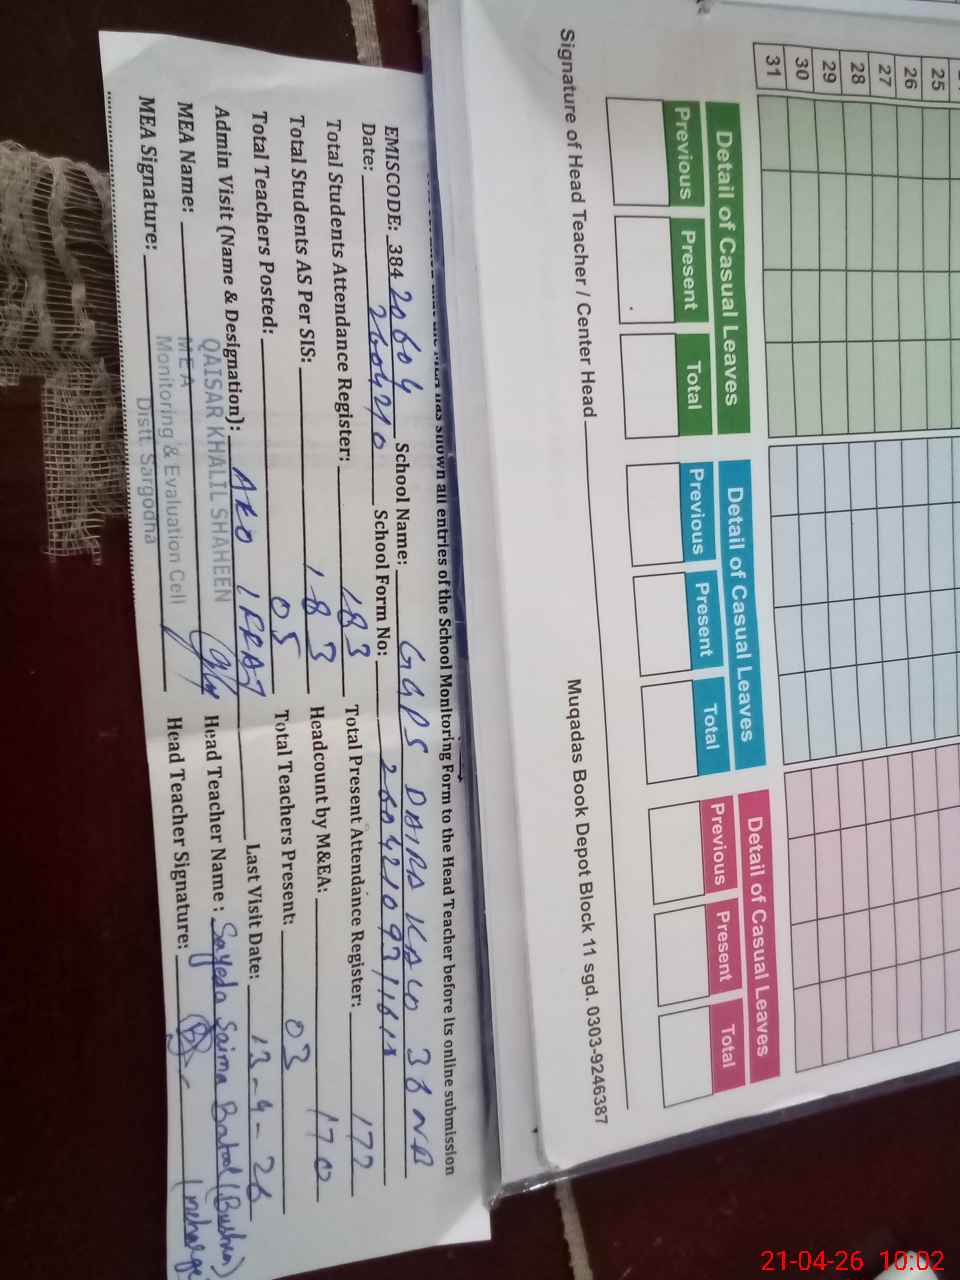 31 30 29 28 27 26 25
Detail of Casual Leaves Detail of Casual Leaves Detail of Casual Leaves
Previous Present Total Previous Present Total Previous Present Total
Signature of Head Teacher / Center Head
Muqadas Book Depot Block 11 sgd. 0303-9246387
has shown all entries of the School Monitoring Form to the Head Teacher before its online submission
EMISCODE: 38420604 School Name: GGPS DAIRA KALO 38 NB
Date: 260421 School Form No:
Total Students Attendance Register: 183 Total Present Attendance Register: 172
Total Students AS Per SIS: 183 Headcount by M&EA: 170
Total Teachers Posted: 05 Total Teachers Present: 03
Admin Visit (Name & Designation): AEO IFRAT Last Visit Date: 13-4-26
MEA Name: Head Teacher Name: Sayeda Saima Batool (Bushra)
MEA Signature: Head Teacher Signature: Incharge
QAISAR KHALIL SHAHEEN
MEA
Monitoring & Evaluation Cell
Distt. Sargodha
21-04-26 10:02